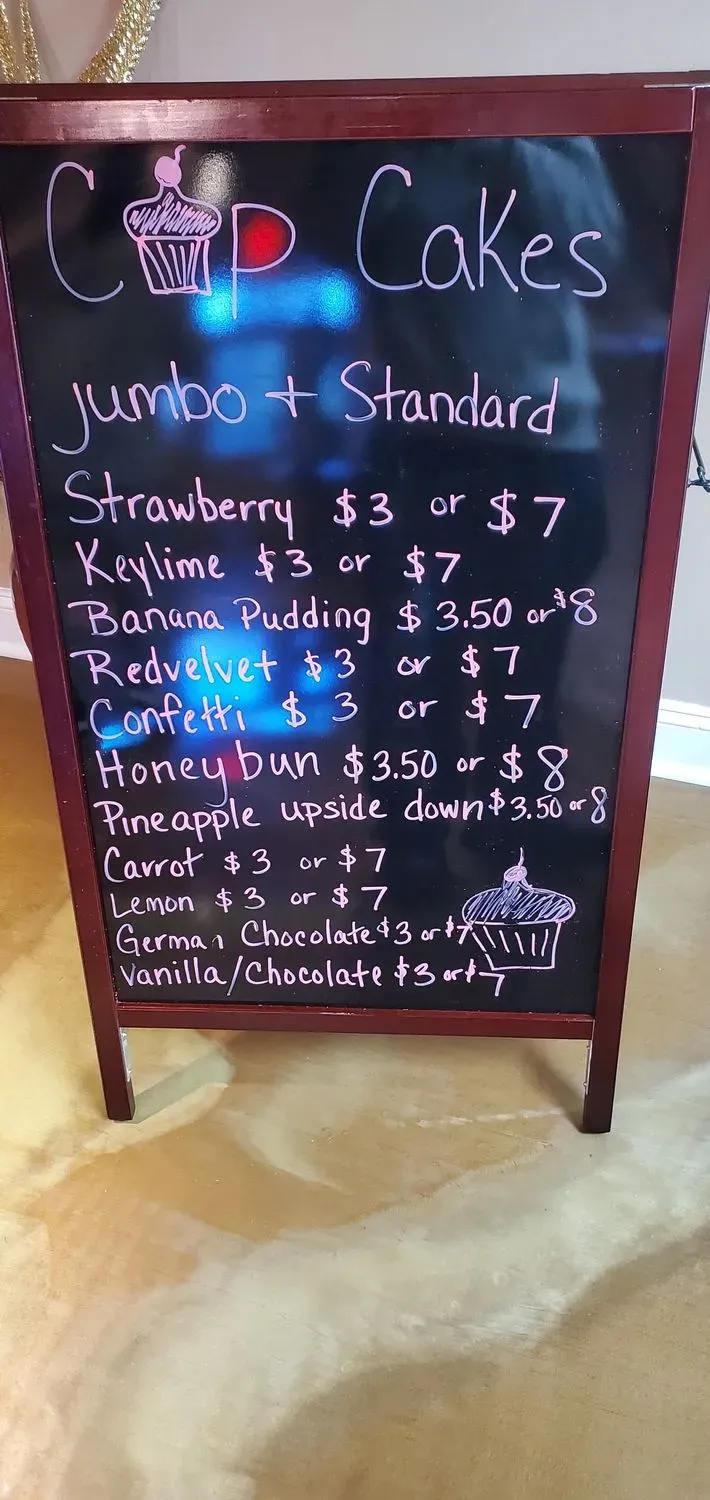 Cup Cakes
jumbo + Standard
Strawberry $3 or $7
Keylime $3 or $7
Banana Pudding $3.50 or $8
Redvelvet $3 or $7
Confetti $3 or $7
Honeybun $3.50 or $8
Pineapple upside down $3.50 or 8
Carrot $3 or $7
Lemon $3 or $7
German Chocolate $3 or $7
Vanilla/Chocolate $3 or $7